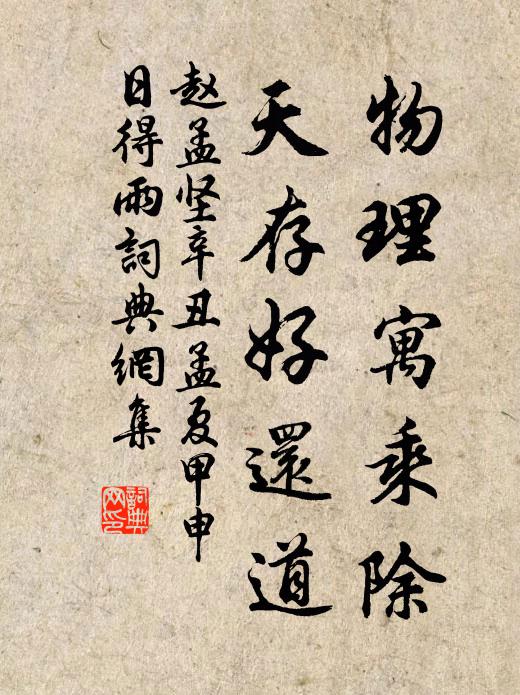 物理寓乘除
天存好還道
赵孟坚辛丑孟夏甲申
日得雨詞典網集
詞典网印